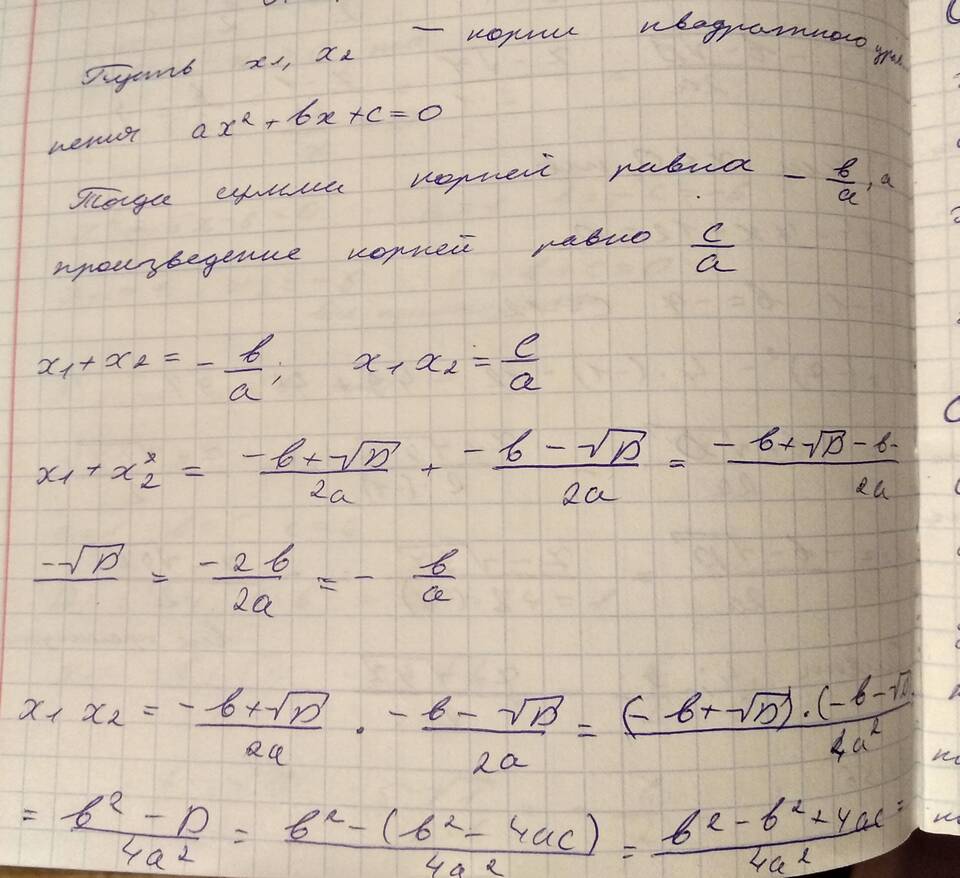 Пусть x1, x2 — корни квадратного урав-
нения ax² + bx + c = 0
Тогда сумма корней равна - b/a, а
произведение корней равно c/a
x1 + x2 = - b/a; x1 x2 = c/a
x1 + x2 = (-b + √D)/2a + (-b - √D)/2a = (-b + √D - b -)/2a
(-√D) = -2b/2a = - b/a
x1 x2 = (-b + √D)/2a · (-b - √D)/2a = (-b + √D) · (-b - √D)/4a²
= (b² - D)/4a² = (b² - (b² - 4ac))/4a² = (b² - b² + 4ac)/4a² =